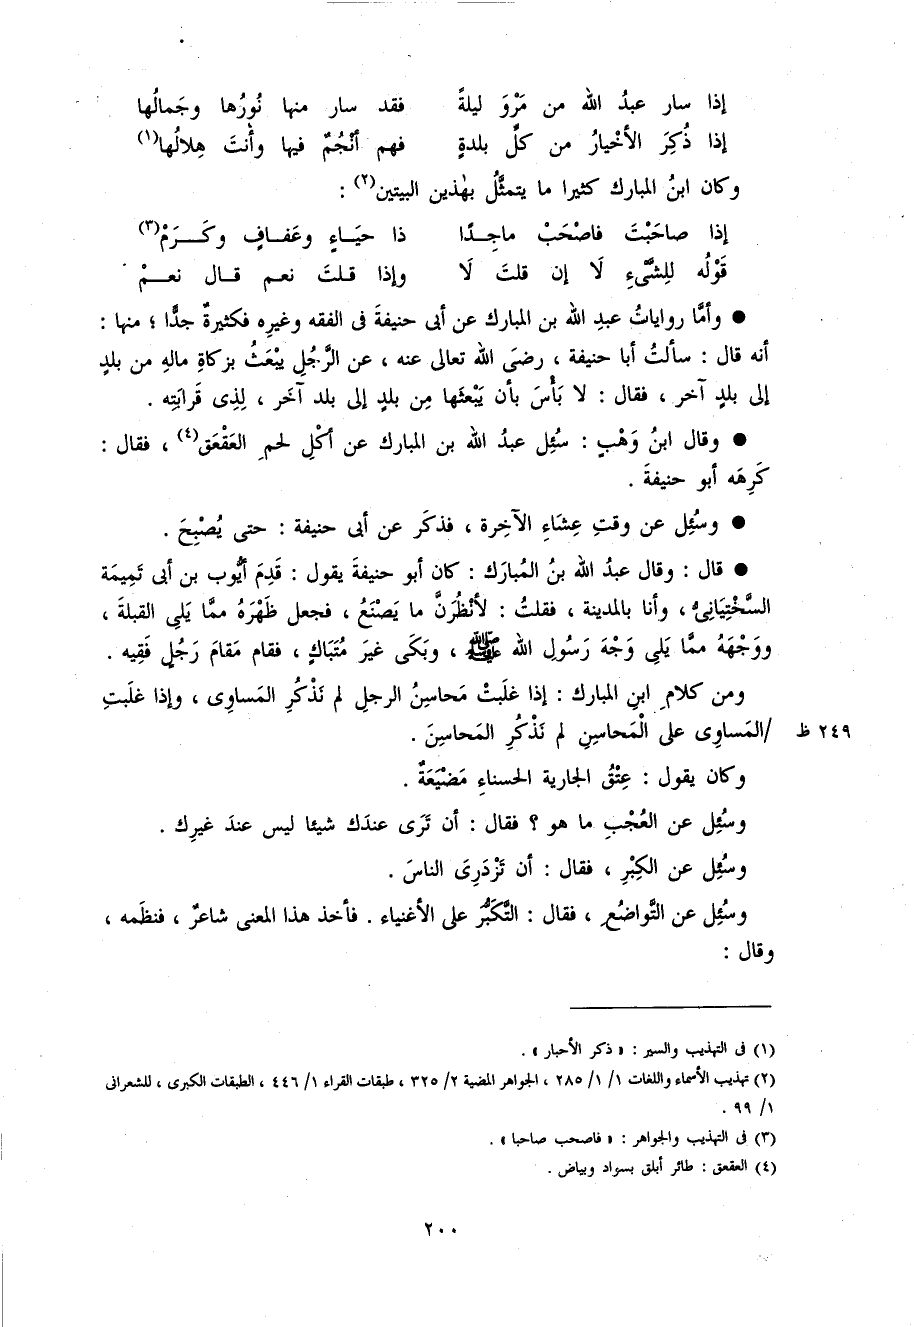 إذا سار عبدُ الله من مَرْوَ ليلةً فقد سار منها نُورُها وجَمالُها
إذا ذُكِرَ الأخْيارُ من كلِّ بلدةٍ فهم أنْجُمٌ فيها وأنتَ هِلالُها(١)
وكان ابنُ المبارك كثيرا ما يتمثَّلُ بهٰذين البيتين(٢) :
إذا صاحَبْتَ فاصْحَبْ ماجِدًا ذا حيَاءٍ وعَفافٍ وكَرَمْ(٣)
قَوْلُه لِلشَّىْءِ لَا إن قلتَ لَا وإذا قلتَ نعم قال نعمْ
● وأمَّا رواياتُ عبدِ الله بن المبارك عن أبى حنيفةَ فى الفقه وغيرِه فكثيرةٌ جدًّا ؛ منها :
أنه قال : سألتُ أبا حنيفة ، رضىَ الله تعالى عنه ، عن الرَّجُلِ يبْعَثُ بزكاةِ مالِه من بلدٍ
إلى بلدٍ آخر ، فقال : لا بَأْسَ بأن يَبْعثَها مِن بلدٍ إلى بلد آخَر ، لِذِى قَرابَتِه .
● وقال ابنُ وَهْبٍ : سُئِل عبدُ الله بن المبارك عن أكْلِ لحمِ العَقْعَقِ(٤) ، فقال :
كَرِهَه أبو حنيفةَ .
● وسُئِل عن وقتِ عِشَاءِ الآخِرة ، فذكَر عن أبى حنيفة : حتى يُصْبِحَ .
● قال : وقال عبدُ الله بنُ المُبارَك : كان أبو حنيفةَ يقول : قَدِمَ أيُّوب بن أبى تَمِيمَة
السَّخْتِيَانِىُّ ، وأنا بالمدينة ، فقلتُ : لأَنْظُرَنَّ ما يَصْنَعُ ، فجعل ظَهْرَهُ ممَّا يَلِى القبلةَ ،
ووَجْهَهُ ممَّا يَلِى وَجْهَ رَسُولِ الله ﷺ ، وبَكَى غيرَ مُتَبَاكٍ ، فقام مَقامَ رَجُلٍ فَقِيه .
ومن كلامِ ابنِ المبارك : إذا غلَبَتْ مَحاسِنُ الرجلِ لم نَذْكُرِ المَساوِى ، وإذا غلَبتِ
/المَساوِى على الْمَحاسِنِ لم نَذْكُرِ المَحاسِنَ . ٢٤٩ ظ
وكان يقول : عِتْقُ الجارية الحسناءِ مَضْيَعَةٌ .
وسُئِل عن العُجْبِ ما هو ؟ فقال : أن تَرَى عندَك شيئا ليس عندَ غيرِك .
وسُئِل عن الكِبْرِ ، فقال : أن تَزْدَرِىَ الناسَ .
وسُئِل عن التَّواضُعِ ، فقال : التَّكَبُّر على الأغنياء . فأخذ هذا المعنى شاعرٌ ، فنظَمه ،
وقال :
(١) فى التهذيب والسير : « ذكر الأحبار » .
(٢) تهذيب الأسماء واللغات ١/ ١/ ٢٨٥ ، الجواهر المضية ٢/ ٣٢٥ ، طبقات القراء ١/ ٤٤٦ ، الطبقات الكبرى ، للشعرانى
١/ ٩٩ .
(٣) فى التهذيب والجواهر : « فاصحب صاحبا » .
(٤) العقعق : طائر أبلق بسواد وبياض .
٢٠٠